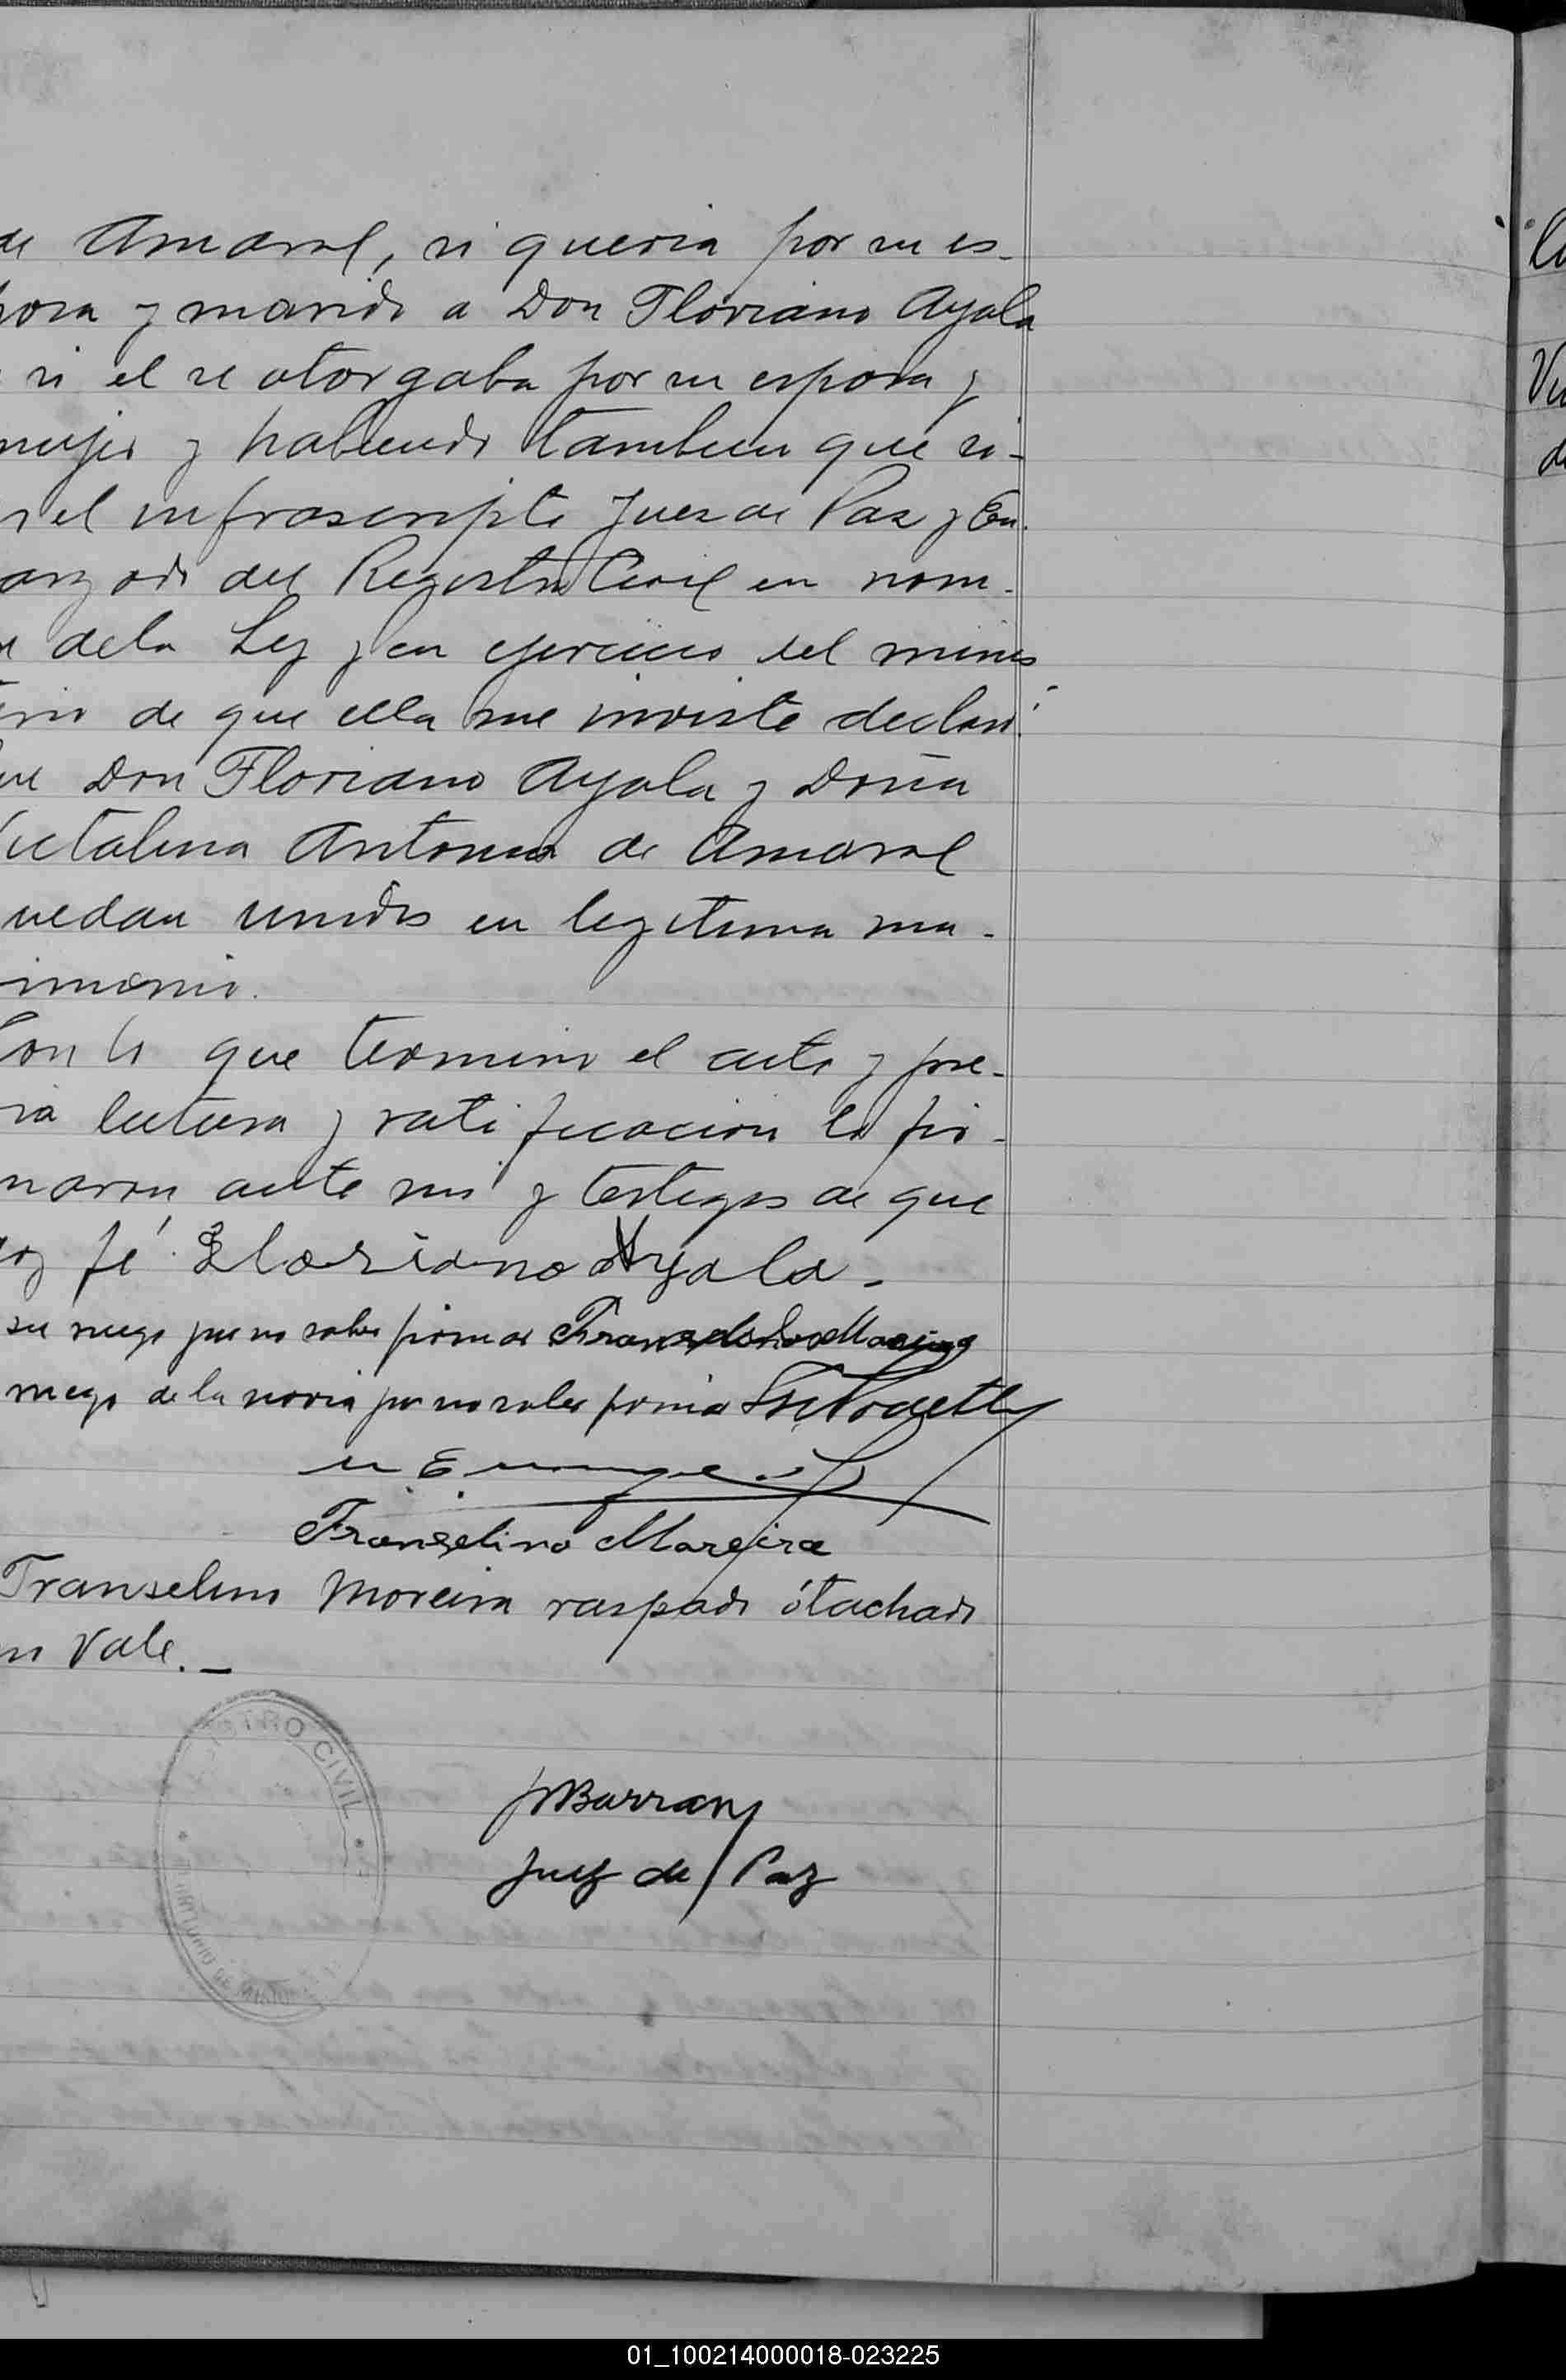 de Amaral, si queria por su es-
posa y marido a Don Floriano Ayala
si el se otorgaba por su esposa y
mujer y habiendo tambien que si-
el infrascripto Juez de Paz y En-
argado del Registro Civil en nom-
de la Ley y en ejercicio del minis
terio de que ella me inviste declaró
que Don Floriano Ayala y Doña
Antonia de Amaral
quedan unidos en legitima ma-
imonio.
Con lo que termino el acto y pre-
via lectura y ratificacion la fir-
maron ante mi y testigos de que
doy fé. Floriano Ayala.-
su ruego por no saber firmar
ruego de la novia por no saber firmar
Franselino Moreira
Franselino Moreira raspado ó tachado
no Vale.-
REGISTRO CIVIL
JBarran
Juez de Paz
01_100214000018-023225